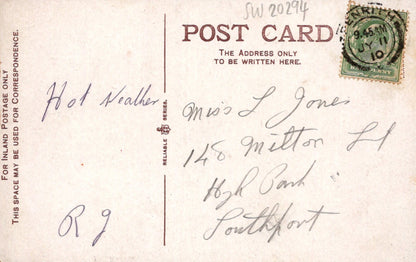 SW 20294
POST CARD
THE ADDRESS ONLY
TO BE WRITTEN HERE.
FOR INLAND POSTAGE ONLY
THIS SPACE MAY BE USED FOR CORRESPONDENCE.
Hot Weather
R J
RELIABLE SERIES.
PENRITH
9.45 AM
JY
10
Miss L Jones
148 Milton St
High Park
Southport